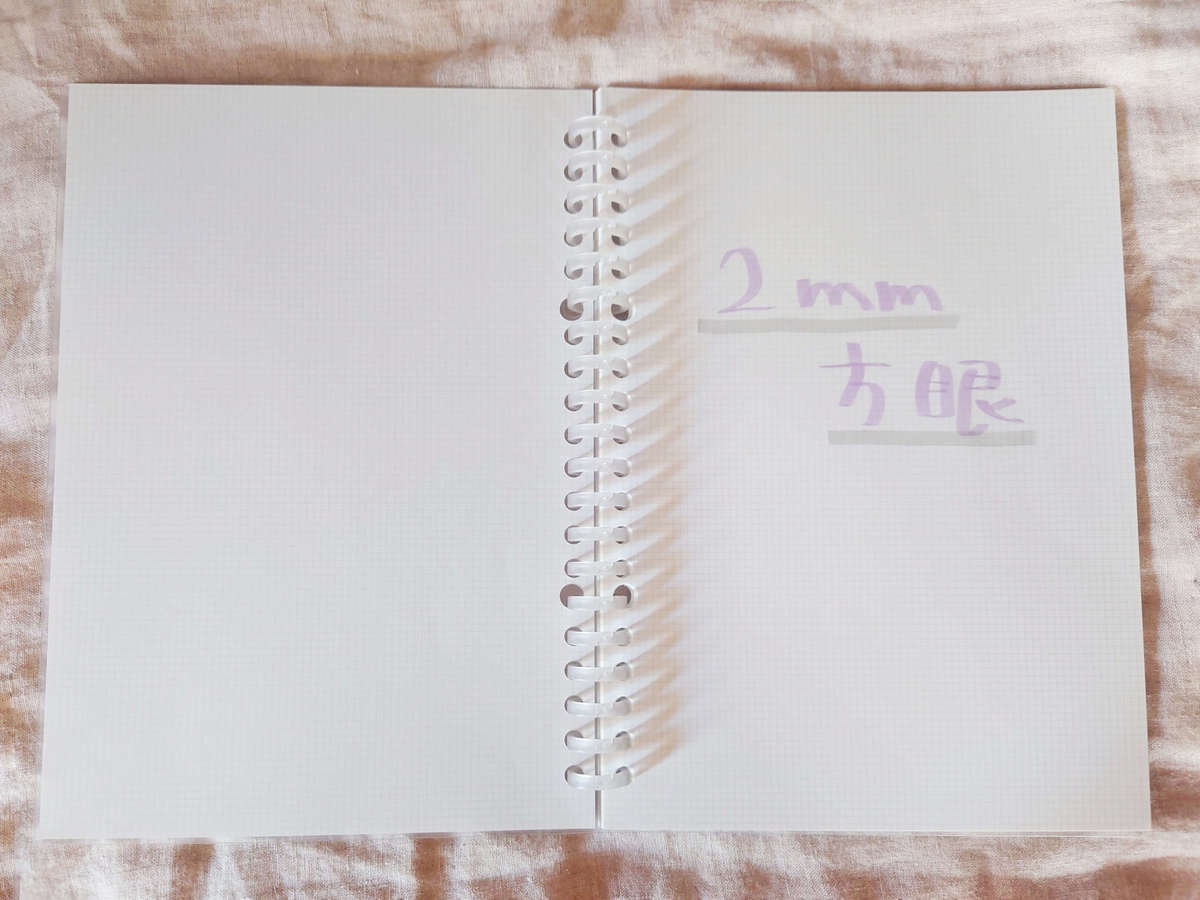 2mm
方眼